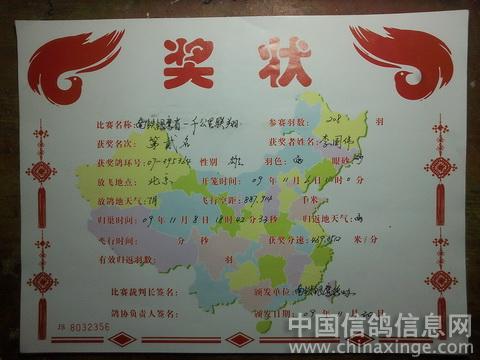 奖状
比赛名称：一千公里联翔 参赛羽数：208 羽
获奖名次：第贰名 获奖者姓名：李国伟
获奖鸽环号：07- 性别 雄 羽色：雨 眼砂：
放飞地点：北京 开笼时间：09年11月 日 时0分
放鸽地天气：晴 飞行空距：887.914 千米
归巢时间：09年11月8日18时42分33秒 归返地天气：雨
飞行时间： 分 秒 获奖分速： 米/分
有效归返羽数： 羽
比赛裁判长签名： 颁发单位：
鸽协负责人签名： 颁发日期：09年11月 日
JS 8032356
中国信鸽信息网
www.chinaxinge.com